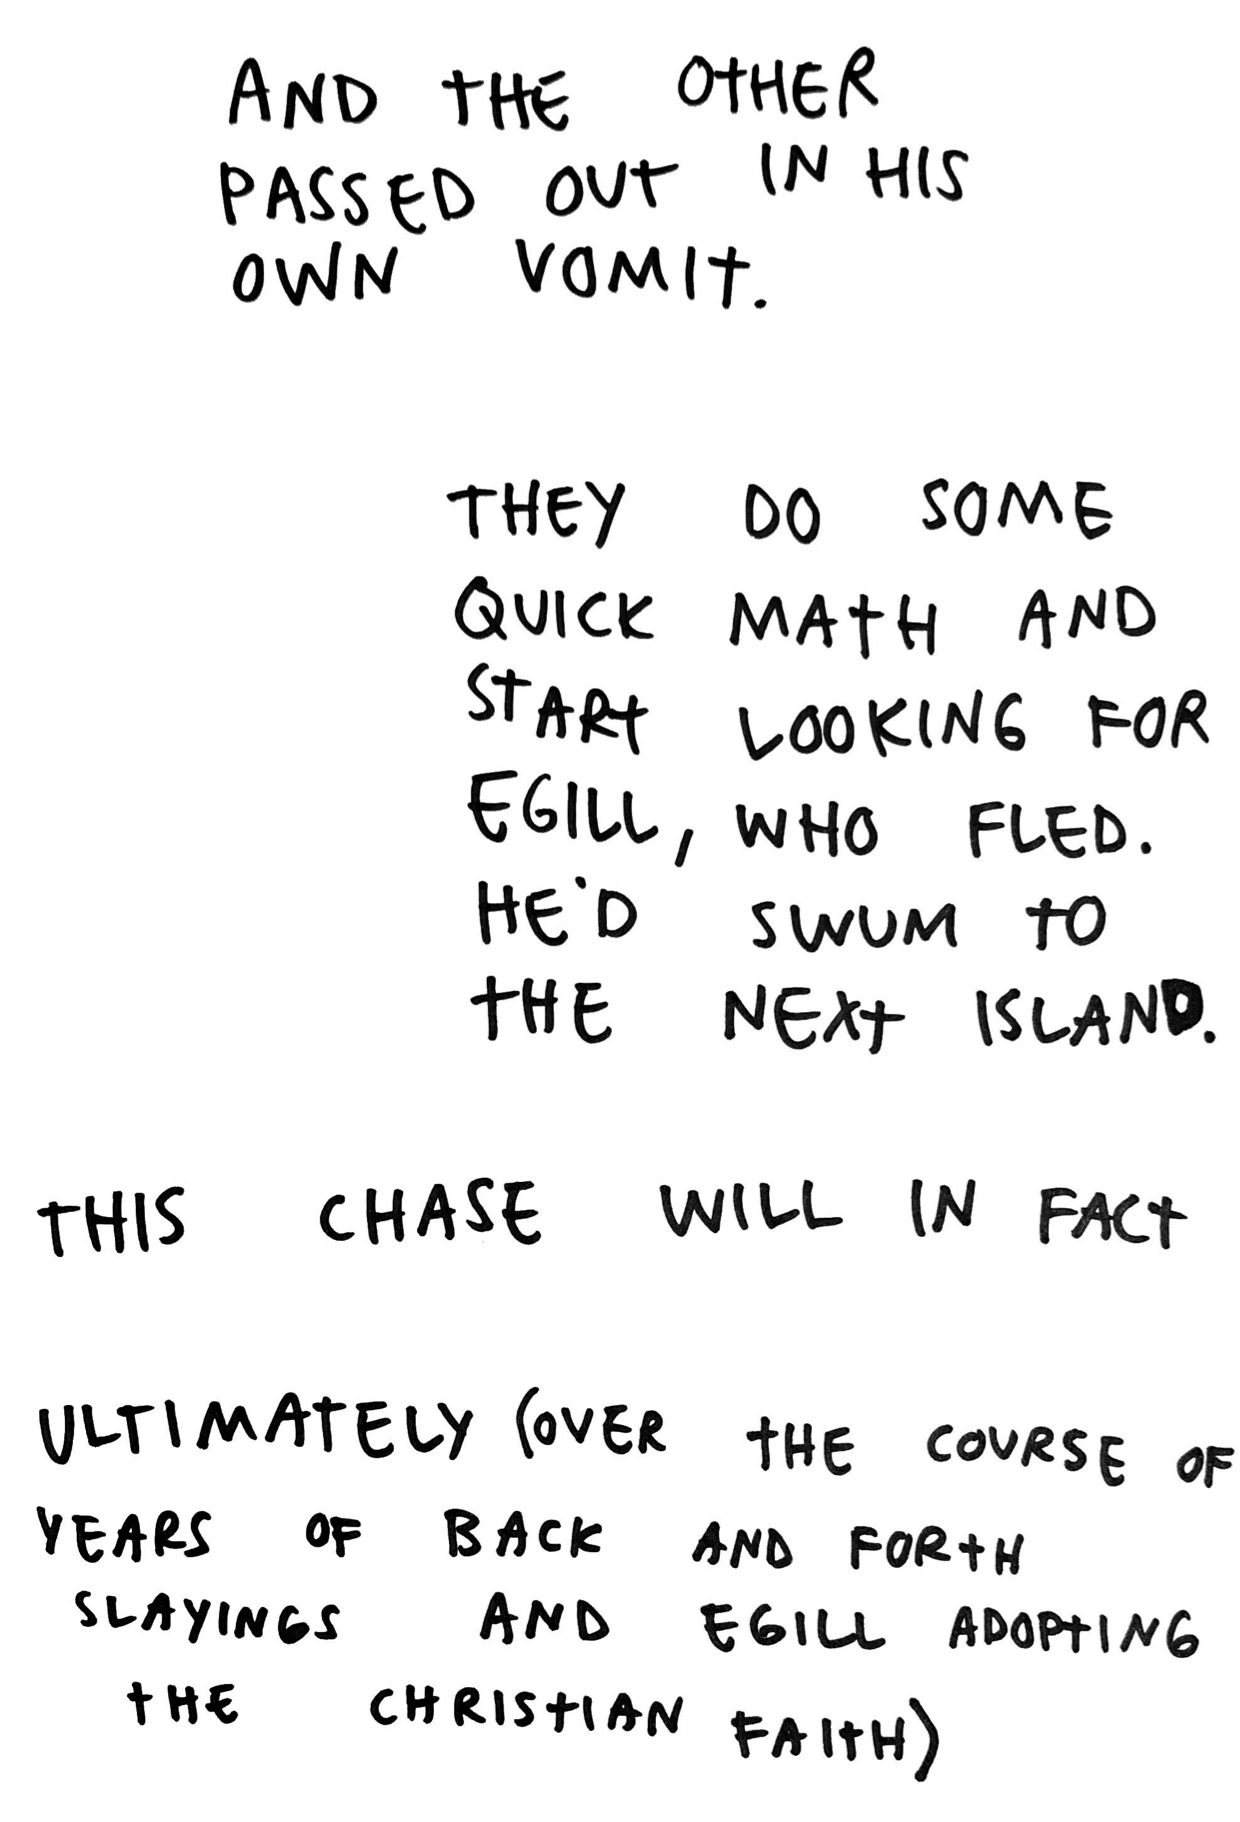 AND THE OTHER
PASSED OUT IN HIS
OWN VOMIT.
THEY DO SOME
QUICK MATH AND
START LOOKING FOR
EGILL, WHO FLED.
HE'D SWUM TO
THE NEXT ISLAND.
THIS CHASE WILL IN FACT
ULTIMATELY (OVER THE COURSE OF
YEARS OF BACK AND FORTH
SLAYINGS AND EGILL ADOPTING
THE CHRISTIAN FAITH)